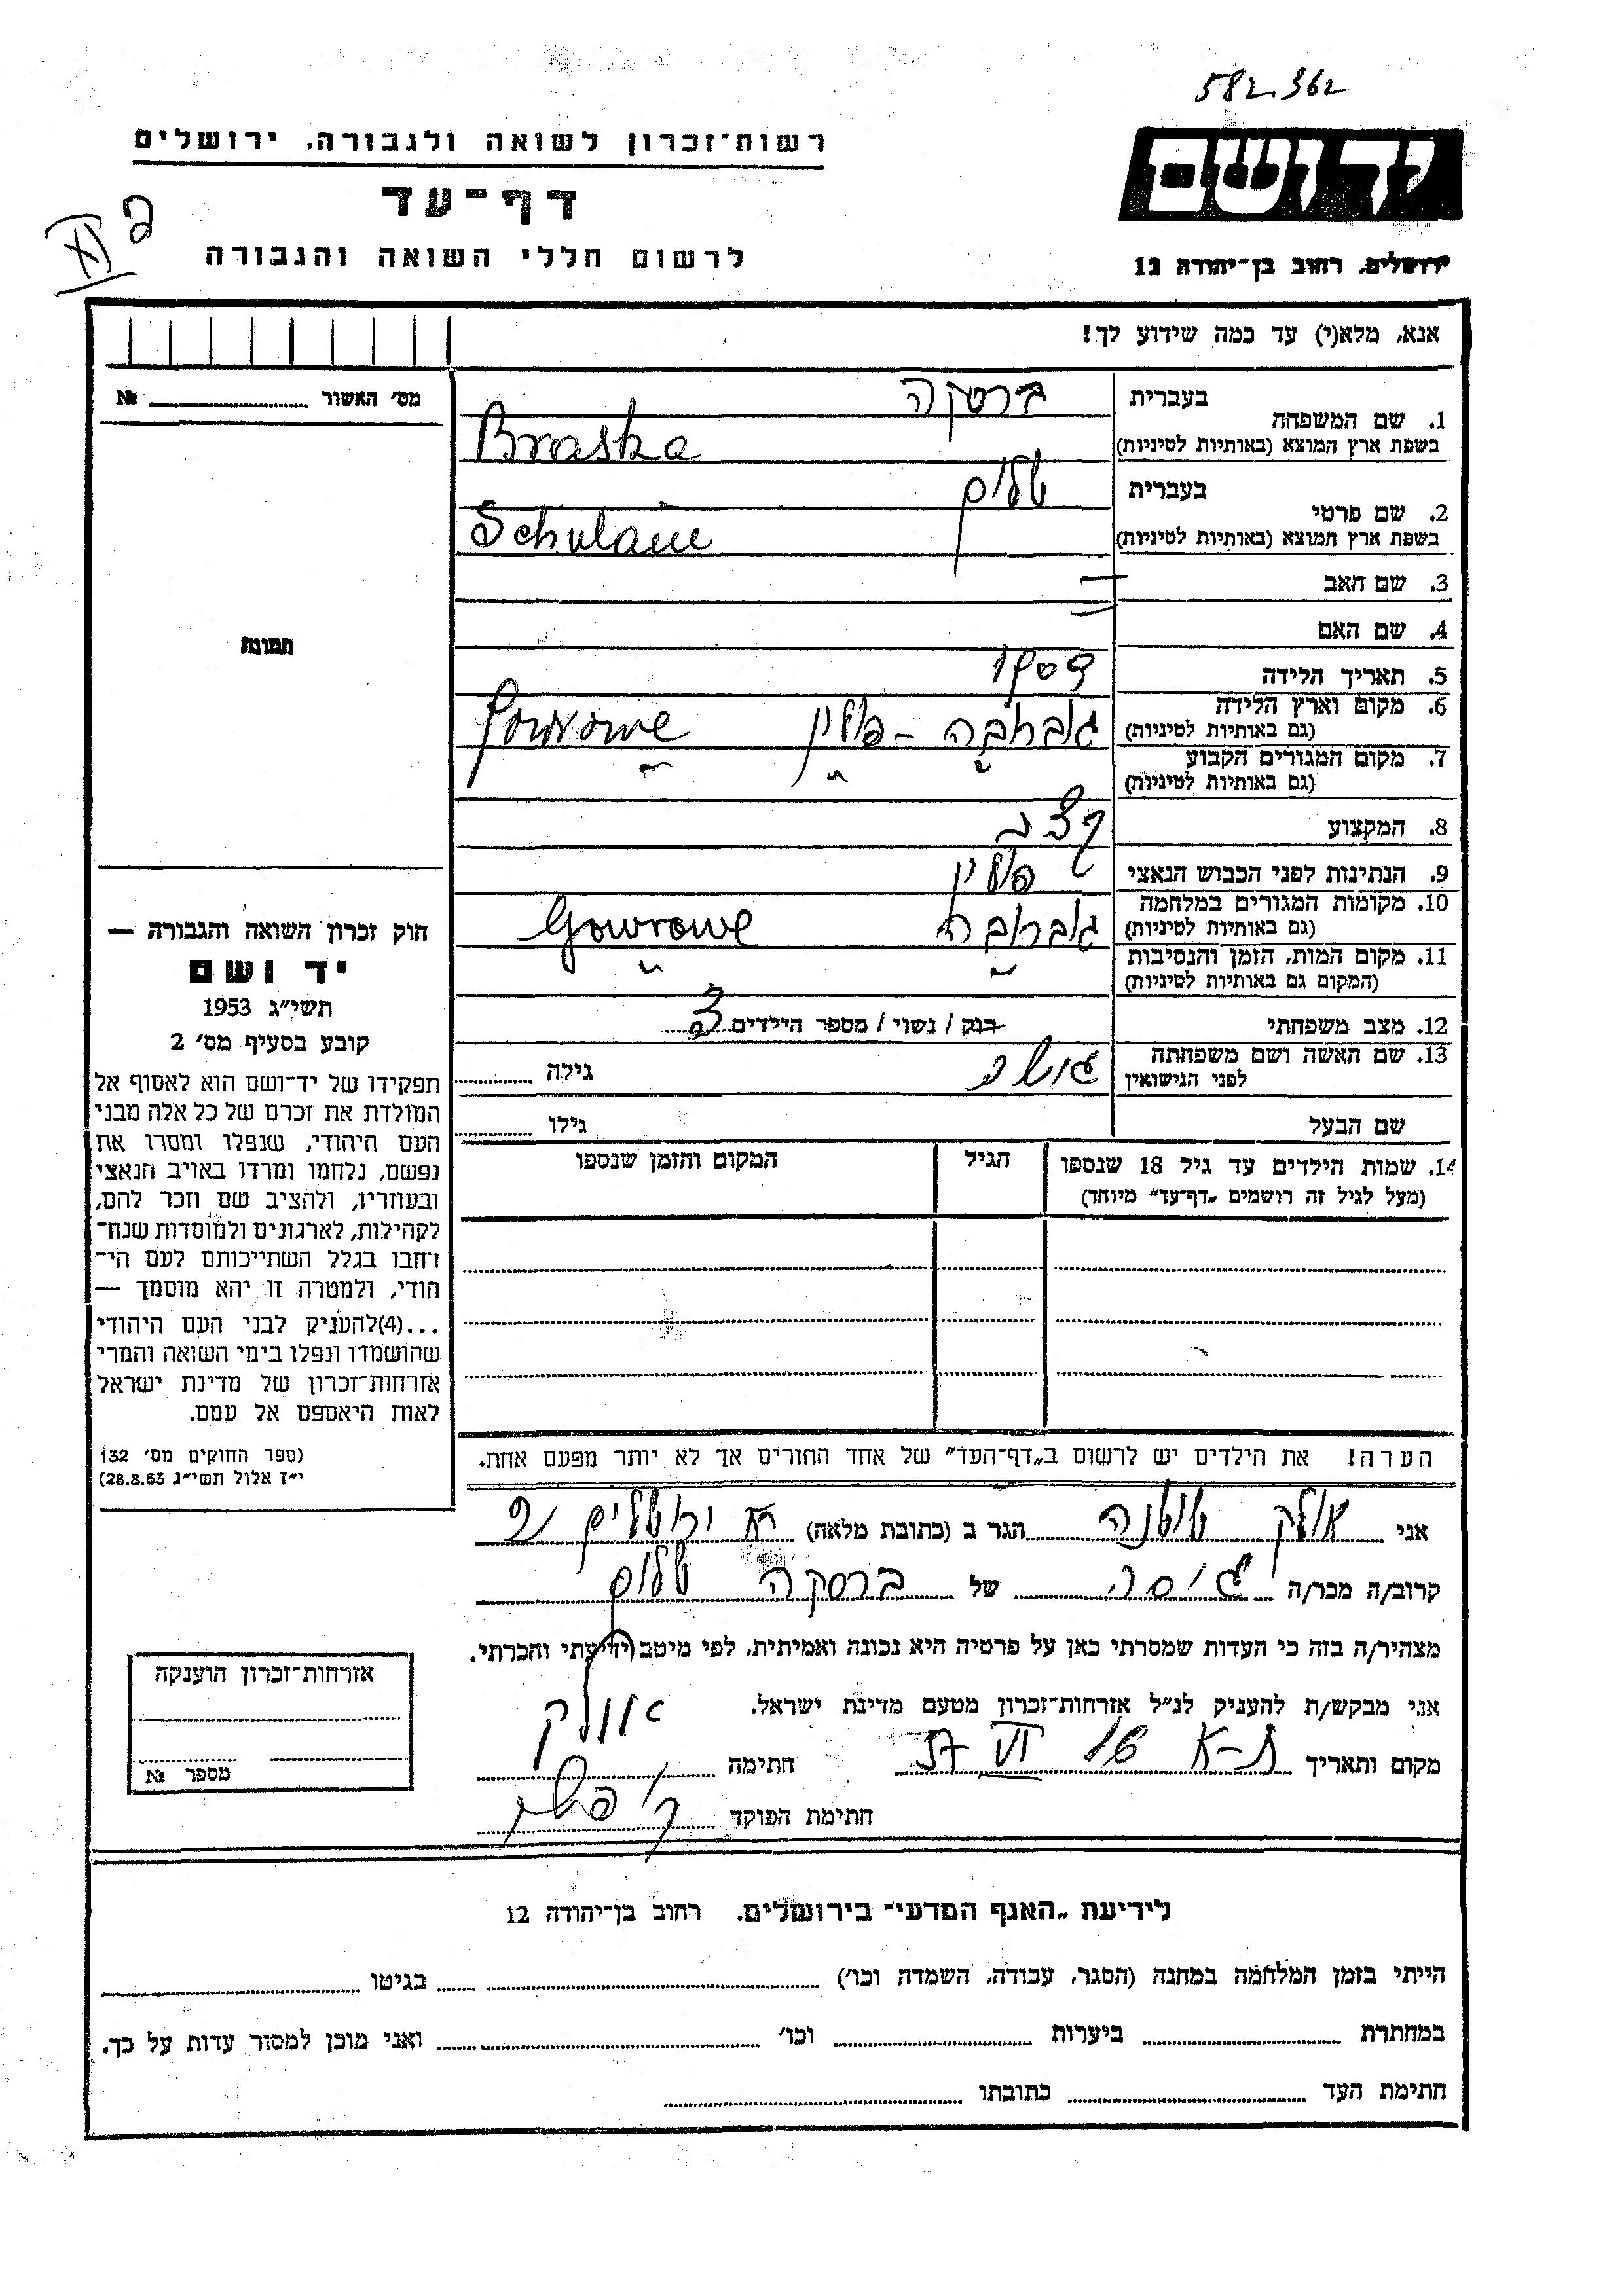 582.362
רשות־זכרון לשואה ולגבורה, ירושלים
יד ושם
דף־עד
לרשום חללי השואה והגבורה
ירושלים, רחוב בן־יהודה 12
אנא, מלא(י) עד כמה שידוע לך!
מס׳ האשור №
1. שם המשפחה
בעברית ברסקה
בשפת ארץ המוצא (באותיות לטיניות) Braska
2. שם פרטי
בעברית שלום
בשפת ארץ המוצא (באותיות לטיניות)
3. שם האב —
4. שם האם —
5. תאריך הלידה 1909
6. מקום וארץ הלידה
(גם באותיות לטיניות) גוברובה – פולין Gowrowe
7. מקום המגורים הקבוע
(גם באותיות לטיניות) ״ ״ ״
8. המקצוע קצב
9. הנתינות לפני הכבוש הנאצי פולין
10. מקומות המגורים במלחמה
(גם באותיות לטיניות) גוברובה Gowrowe
11. מקום המות, הזמן והנסיבות
(המקום גם באותיות לטיניות) ״ ״
12. מצב משפחתי רווק / נשוי / מספר הילדים 3
13. שם האשה ושם משפחתה
לפני הנישואין גילה
שם הבעל גילו
14. שמות הילדים עד גיל 18 שנספו הגיל המקום והזמן שנספו
(מעל לגיל זה רושמים „דף־עד״ מיוחד)
הערה! את הילדים יש לרשום ב„דף־העד״ של אחד ההורים אך לא יותר מפעם אחת.
תמונה
חוק זכרון השואה והגבורה —
יד ושם
תשי״ג 1953
קובע בסעיף מס׳ 2
תפקידו של יד־ושם הוא לאסוף אל
המולדת את זכרם של כל אלה מבני
העם היהודי, שנפלו ומסרו את
נפשם, נלחמו ומרדו באויב הנאצי
ובעוזריו, ולהציב שם וזכר להם,
לקהילות, לארגונים ולמוסדות שנח־
רחבו בגלל השתייכותם לעם הי־
הודי, ולמטרה זו יהא מוסמך —
...(4)להעניק לבני העם היהודי
שהושמדו ונפלו בימי השואה והמרי
אזרחות־זכרון של מדינת ישראל
לאות היאספם אל עמם.
(ספר החוקים מס׳ 132
י״ז אלול תשי״ג 28.8.53)
אני שושנה הגר ב (כתובת מלאה)
קרוב/ה מכר/ה גיסה של ברסקה שלום
מצהיר/ה בזה כי העדות שמסרתי כאן על פרטיה היא נכונה ואמיתית, לפי מיטב ידיעתי והכרתי.
אני מבקש/ת להעניק לנ״ל אזרחות־זכרון מטעם מדינת ישראל.
מקום ותאריך ת–א 16 VI 57 חתימה
חתימת הפוקד
אזרחות־זכרון הוענקה
מספר №
לידיעת „האגף המדעי״ בירושלים. רחוב בן־יהודה 12
הייתי בזמן המלחמה במחנה (הסגר, עבודה, השמדה וכו׳) בגיטו
במחתרת ביערות וכו׳ ואני מוכן למסור עדות על כך.
חתימת העד כתובתו